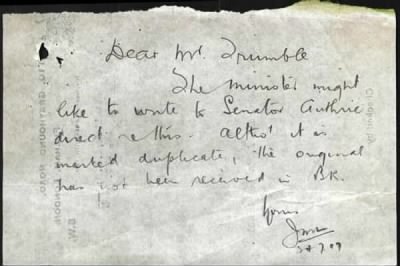 Dear Mr. Trumble
The Minister might
like to write to Senator Guthrie
direct re this. Altho' it is
marked duplicate, the original
has not been received in BK.
Yours